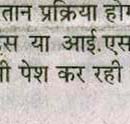 तान प्रक्रिया होग
स या आई.एस
ी पेश कर रही